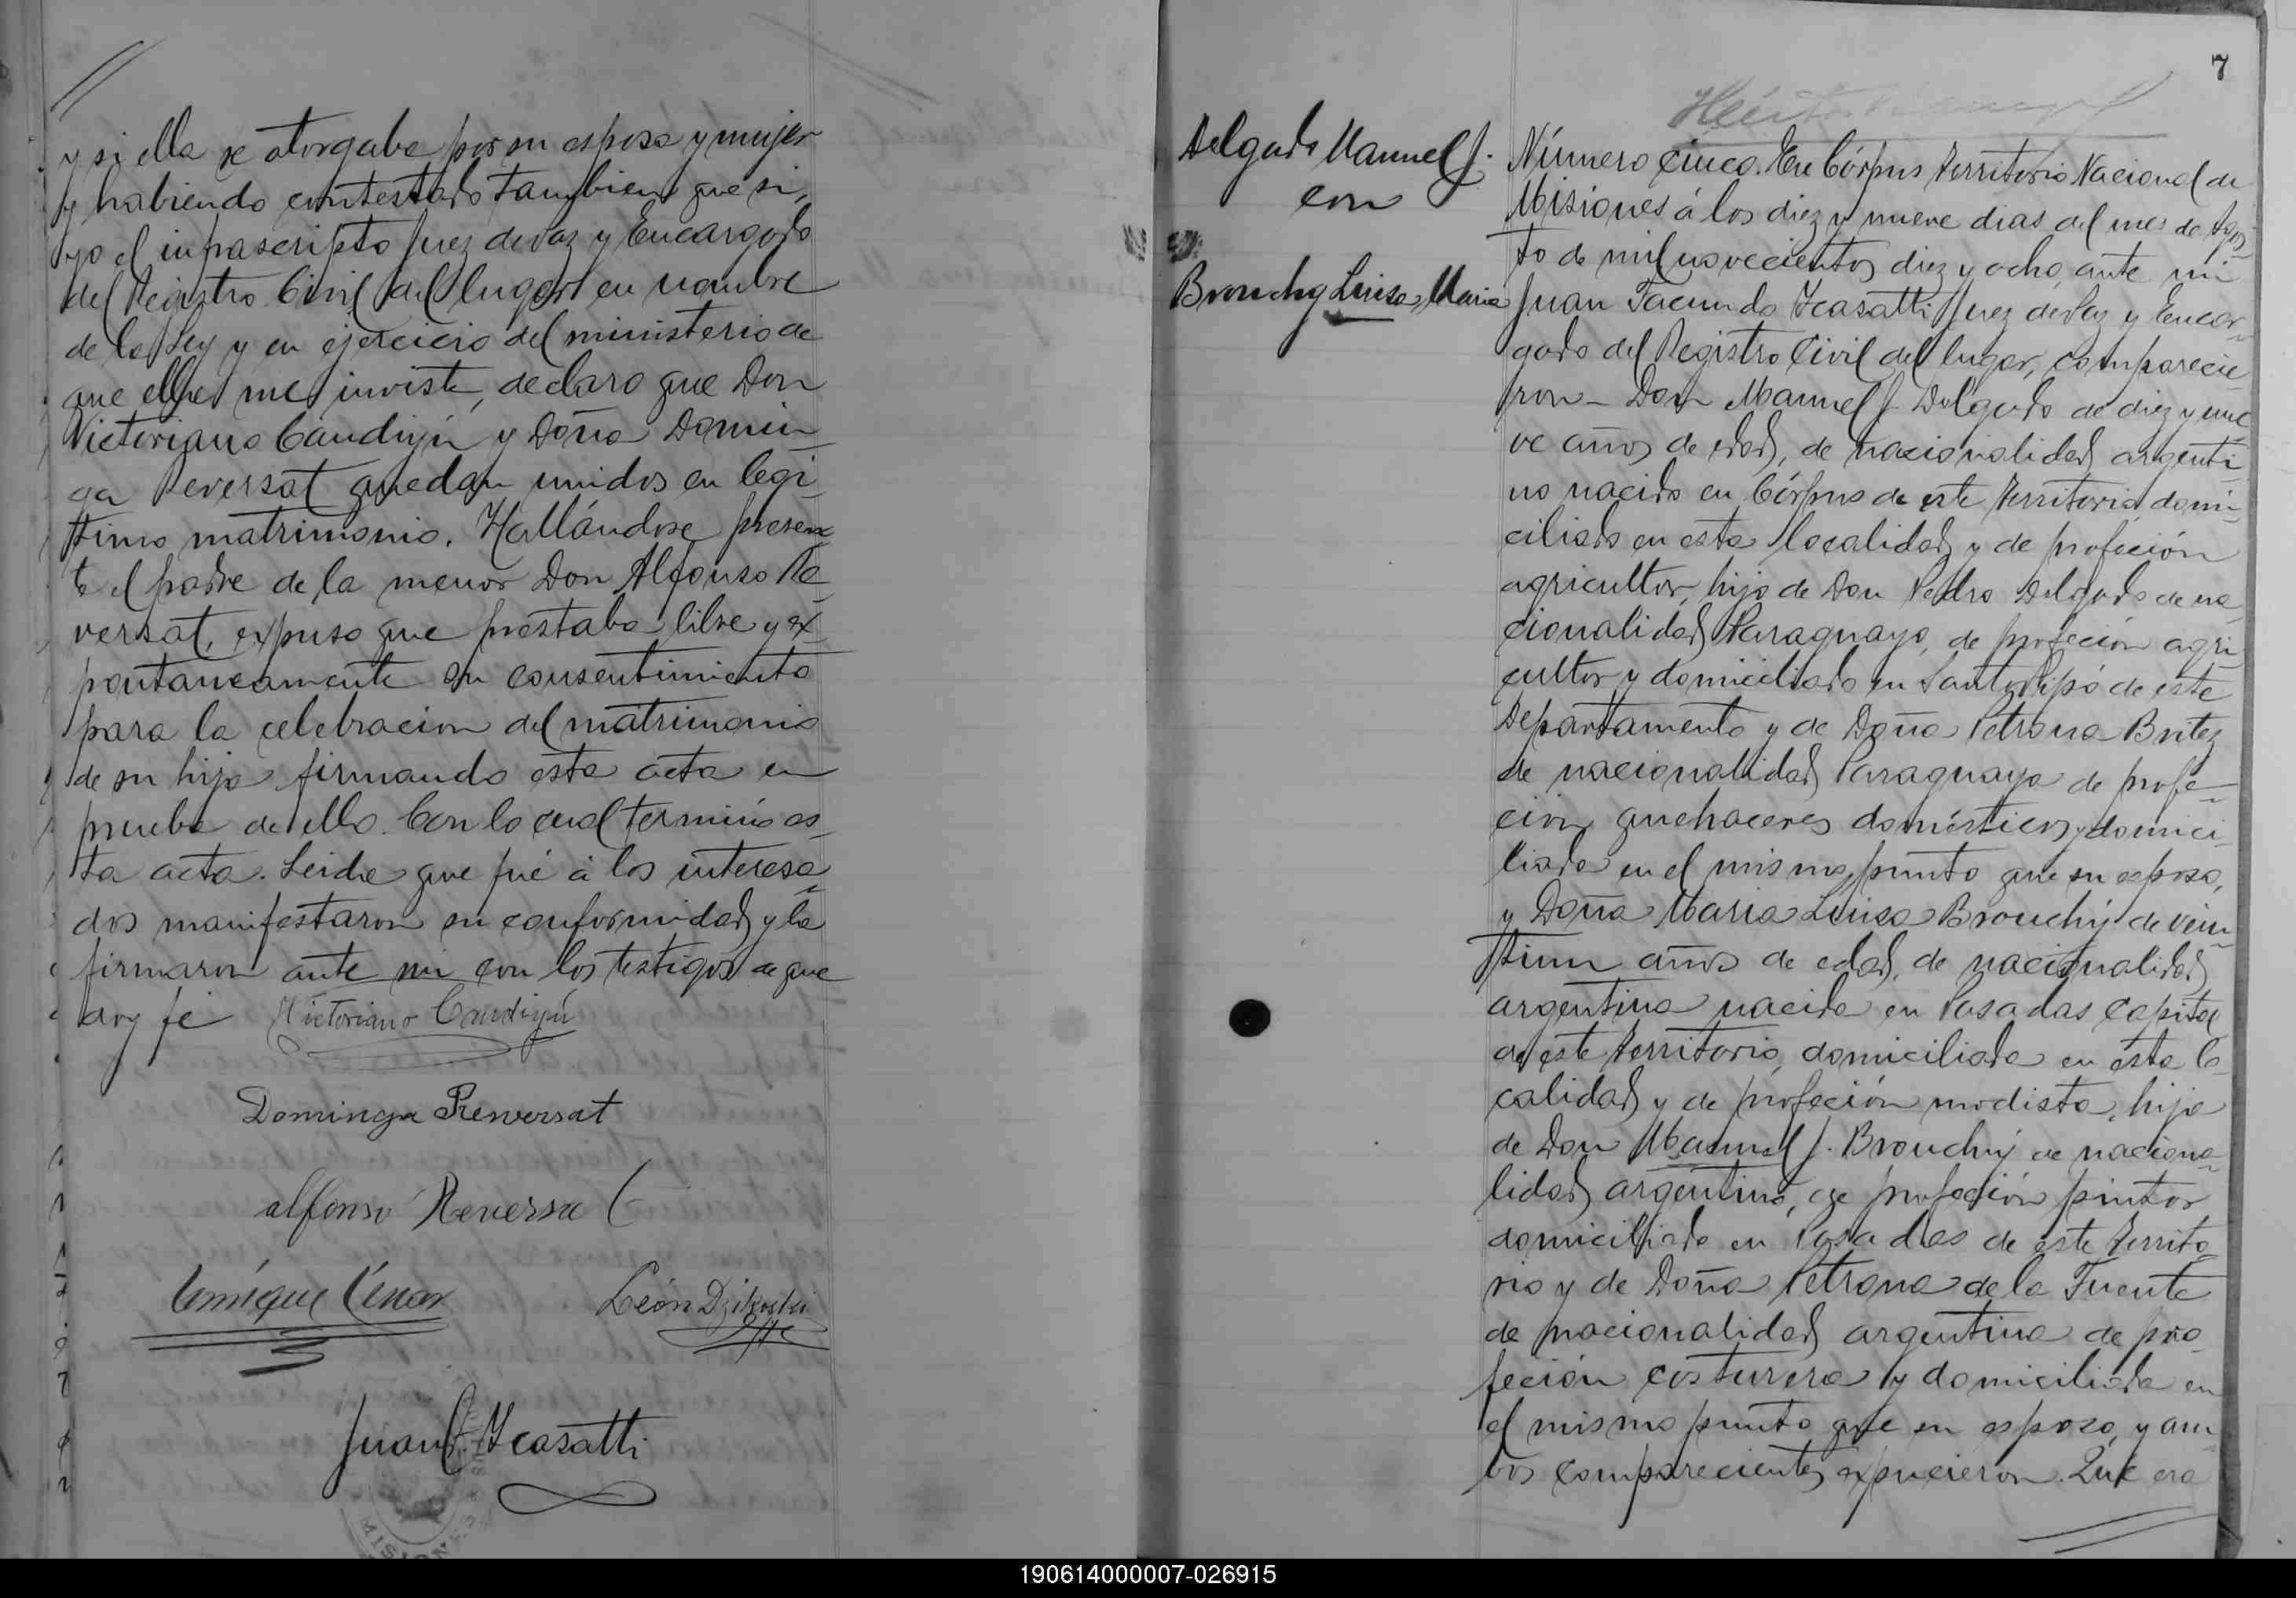 y si ella se otorgaba por su esposa y mujer
y habiendo contestado tambien que si,
yo el infrascripto Juez de Paz y Encargado
del Registro Civil del lugar en nombre
de la Ley y en ejercicio del ministerio de
que ella me inviste, declaro que Don
Victoriano Candiyú y Doña Domin-
ga Reversat quedan unidos en legi-
timo matrimonio. Hallándose presen-
te el padre de la menor Don Alfonso Re-
versat, expuso que prestaba libre y ex-
pontaneamente su consentimiento
para la celebracion del matrimonio
de su hija firmando esta acta en
prueba de ello. Con lo cual terminó es-
ta acta. Leida que fué á los interesa-
dos manifestaron su conformidad y la
firmaron ante mi con los testigos de que
doy fé Victoriano Candiyú
Dominga Rewersat
alfonso Reversat
Enrique
León
Juan F. Ycasatti
MISIONES
7
Delgado Manuel J.
con
Brouchy Luisa Maria
Número cinco. En Córpus Territorio Nacional de
Misiones á los diez y nueve dias del mes de Agos-
to de mil novecientos diez y ocho, ante mi
Juan Facundo Ycasatti Juez de Paz y Encar-
gado del Registro Civil del lugar, comparecie-
ron - Don Manuel J. Delgado de diez y nue-
ve años de edad, de nacionalidad argenti-
no nacido en Córpus de este Territorio domi-
ciliado en esta localidad y de profeción
agricultor, hijo de Don Pedro Delgado de na-
cionalidad Paraguayo, de profeción agri-
cultor y domiciliado en Santo Pipó de este
Departamento y de Doña Petrona Britez
de nacionalidad Paraguaya de profe-
ción quehaceres domésticos y domici-
liada en el mismo punto que su esposo,
y Doña Maria Luisa Brouchy de vein-
tiun años de edad, de nacionalidad
argentina nacida en Posadas Capital
de este Territorio, domiciliada en ésta lo-
calidad y de profeción modista, hija
de Don Manuel J. Brouchy de naciona-
lidad argentino, de profeción pintor
domiciliado en Posadas de este Territo-
rio y de Doña Petrona de la Fuente
de nacionalidad argentina de pro-
feción costurera y domiciliada en
el mismo punto que su esposo, y am-
bos comparecientes expucieron. Que era
190614000007-026915